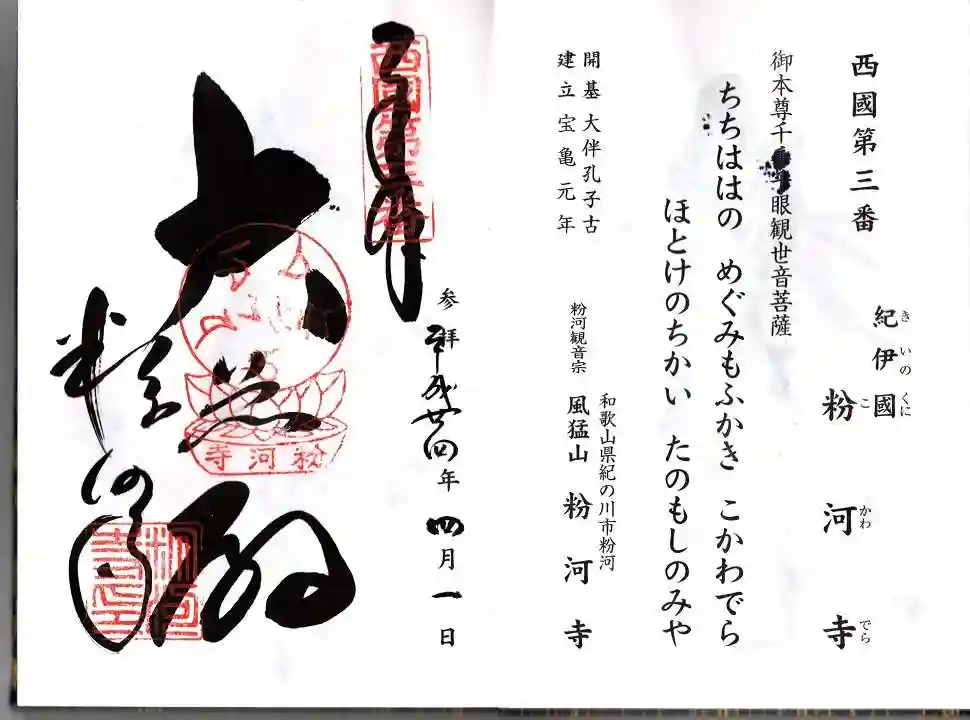 西國第三番
紀伊國
きいのくに
粉河寺
こかわでら
御本尊千手千眼観世音菩薩
ちちははの めぐみもふかき こかわでら
ほとけのちかい たのもしのみや
開基大伴孔子古
建立宝亀元年
和歌山県紀の川市粉河
粉河観音宗 風猛山 粉河寺
参拝 平成廿四年四月一日
西國第三番
大悲殿
粉河寺
粉河寺